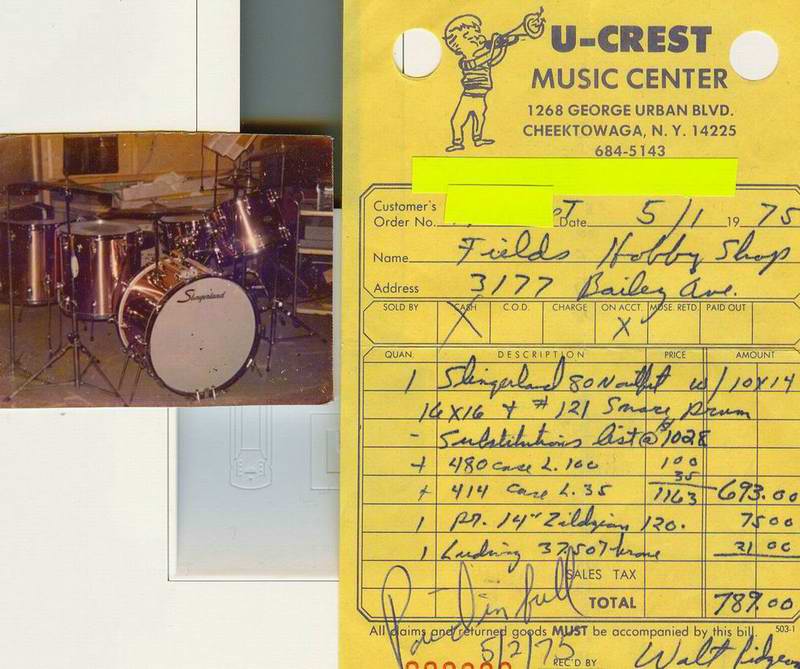 Slingerland
U-CREST
MUSIC CENTER
1268 GEORGE URBAN BLVD.
CHEEKTOWAGA, N. Y. 14225
684-5143
Customer's
Order No. Date 5/1 1975
Name Fields Hobby Shop
Address 3177 Bailey Ave.
SOLD BY CASH C.O.D. CHARGE ON ACCT. MDSE. RETD. PAID OUT
X X
QUAN. DESCRIPTION PRICE AMOUNT
1 Slingerland 80N outfit w/ 10x14
16x16 + #121 Snare Drum
- Substitutions list @ $1028
+ 480 case L. 100 100
35
+ 414 case L. 35 1163 693.00
1 pr. 14" Zildjian 120. 75 00
1 Ludwig throne 21 00
SALES TAX
Paid in full
TOTAL 789.00
All claims and returned goods MUST be accompanied by this bill. 503-1
5/2/75 REC'D BY Walt